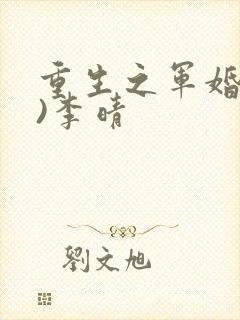 重生之军婚
)李晴
劉文旭